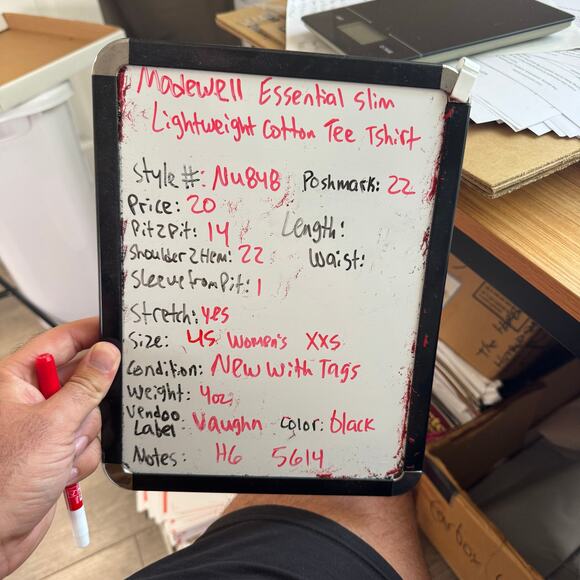 Madewell Essential Slim
Lightweight Cotton Tee Tshirt
Style#: NU848 Poshmark: 22
Price: 20
Pit2Pit: 14 Length:
Shoulder2Hem: 22 Waist:
Sleeve from Pit: 1
Stretch: yes
Size: US Women's XXS
Condition: New with Tags
Weight: 4oz
Vendoo
Label: Vaughn Color: black
Notes: H6 5614